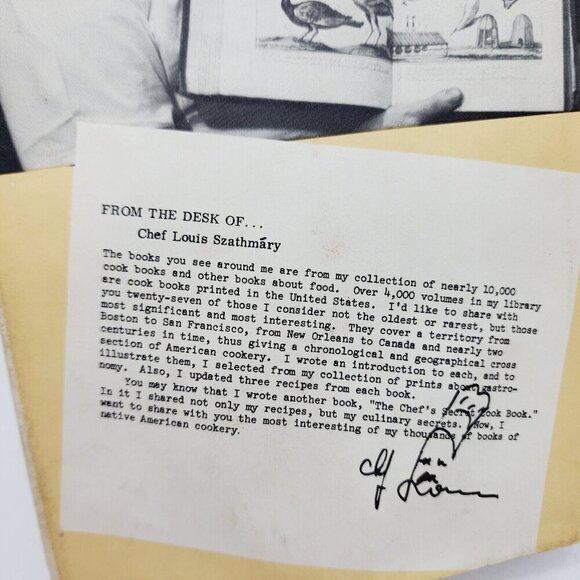 FROM THE DESK OF...
Chef Louis Szathmáry
The books you see around me are from my collection of nearly 10,000
cook books and other books about food. Over 4,000 volumes in my library
are cook books printed in the United States. I'd like to share with
you twenty-seven of those I consider not the oldest or rarest, but those
most significant and most interesting. They cover a territory from
Boston to San Francisco, from New Orleans to Canada and nearly two
centuries in time, thus giving a chronological and geographical cross
section of American cookery. I wrote an introduction to each, and to
illustrate them, I selected from my collection of prints about gastro-
nomy. Also, I updated three recipes from each book.
You may know that I wrote another book, "The Chef's Secret Cook Book."
In it I shared not only my recipes, but my culinary secrets. Now, I
want to share with you the most interesting of my thousands of books of
native American cookery.
Chef Louis